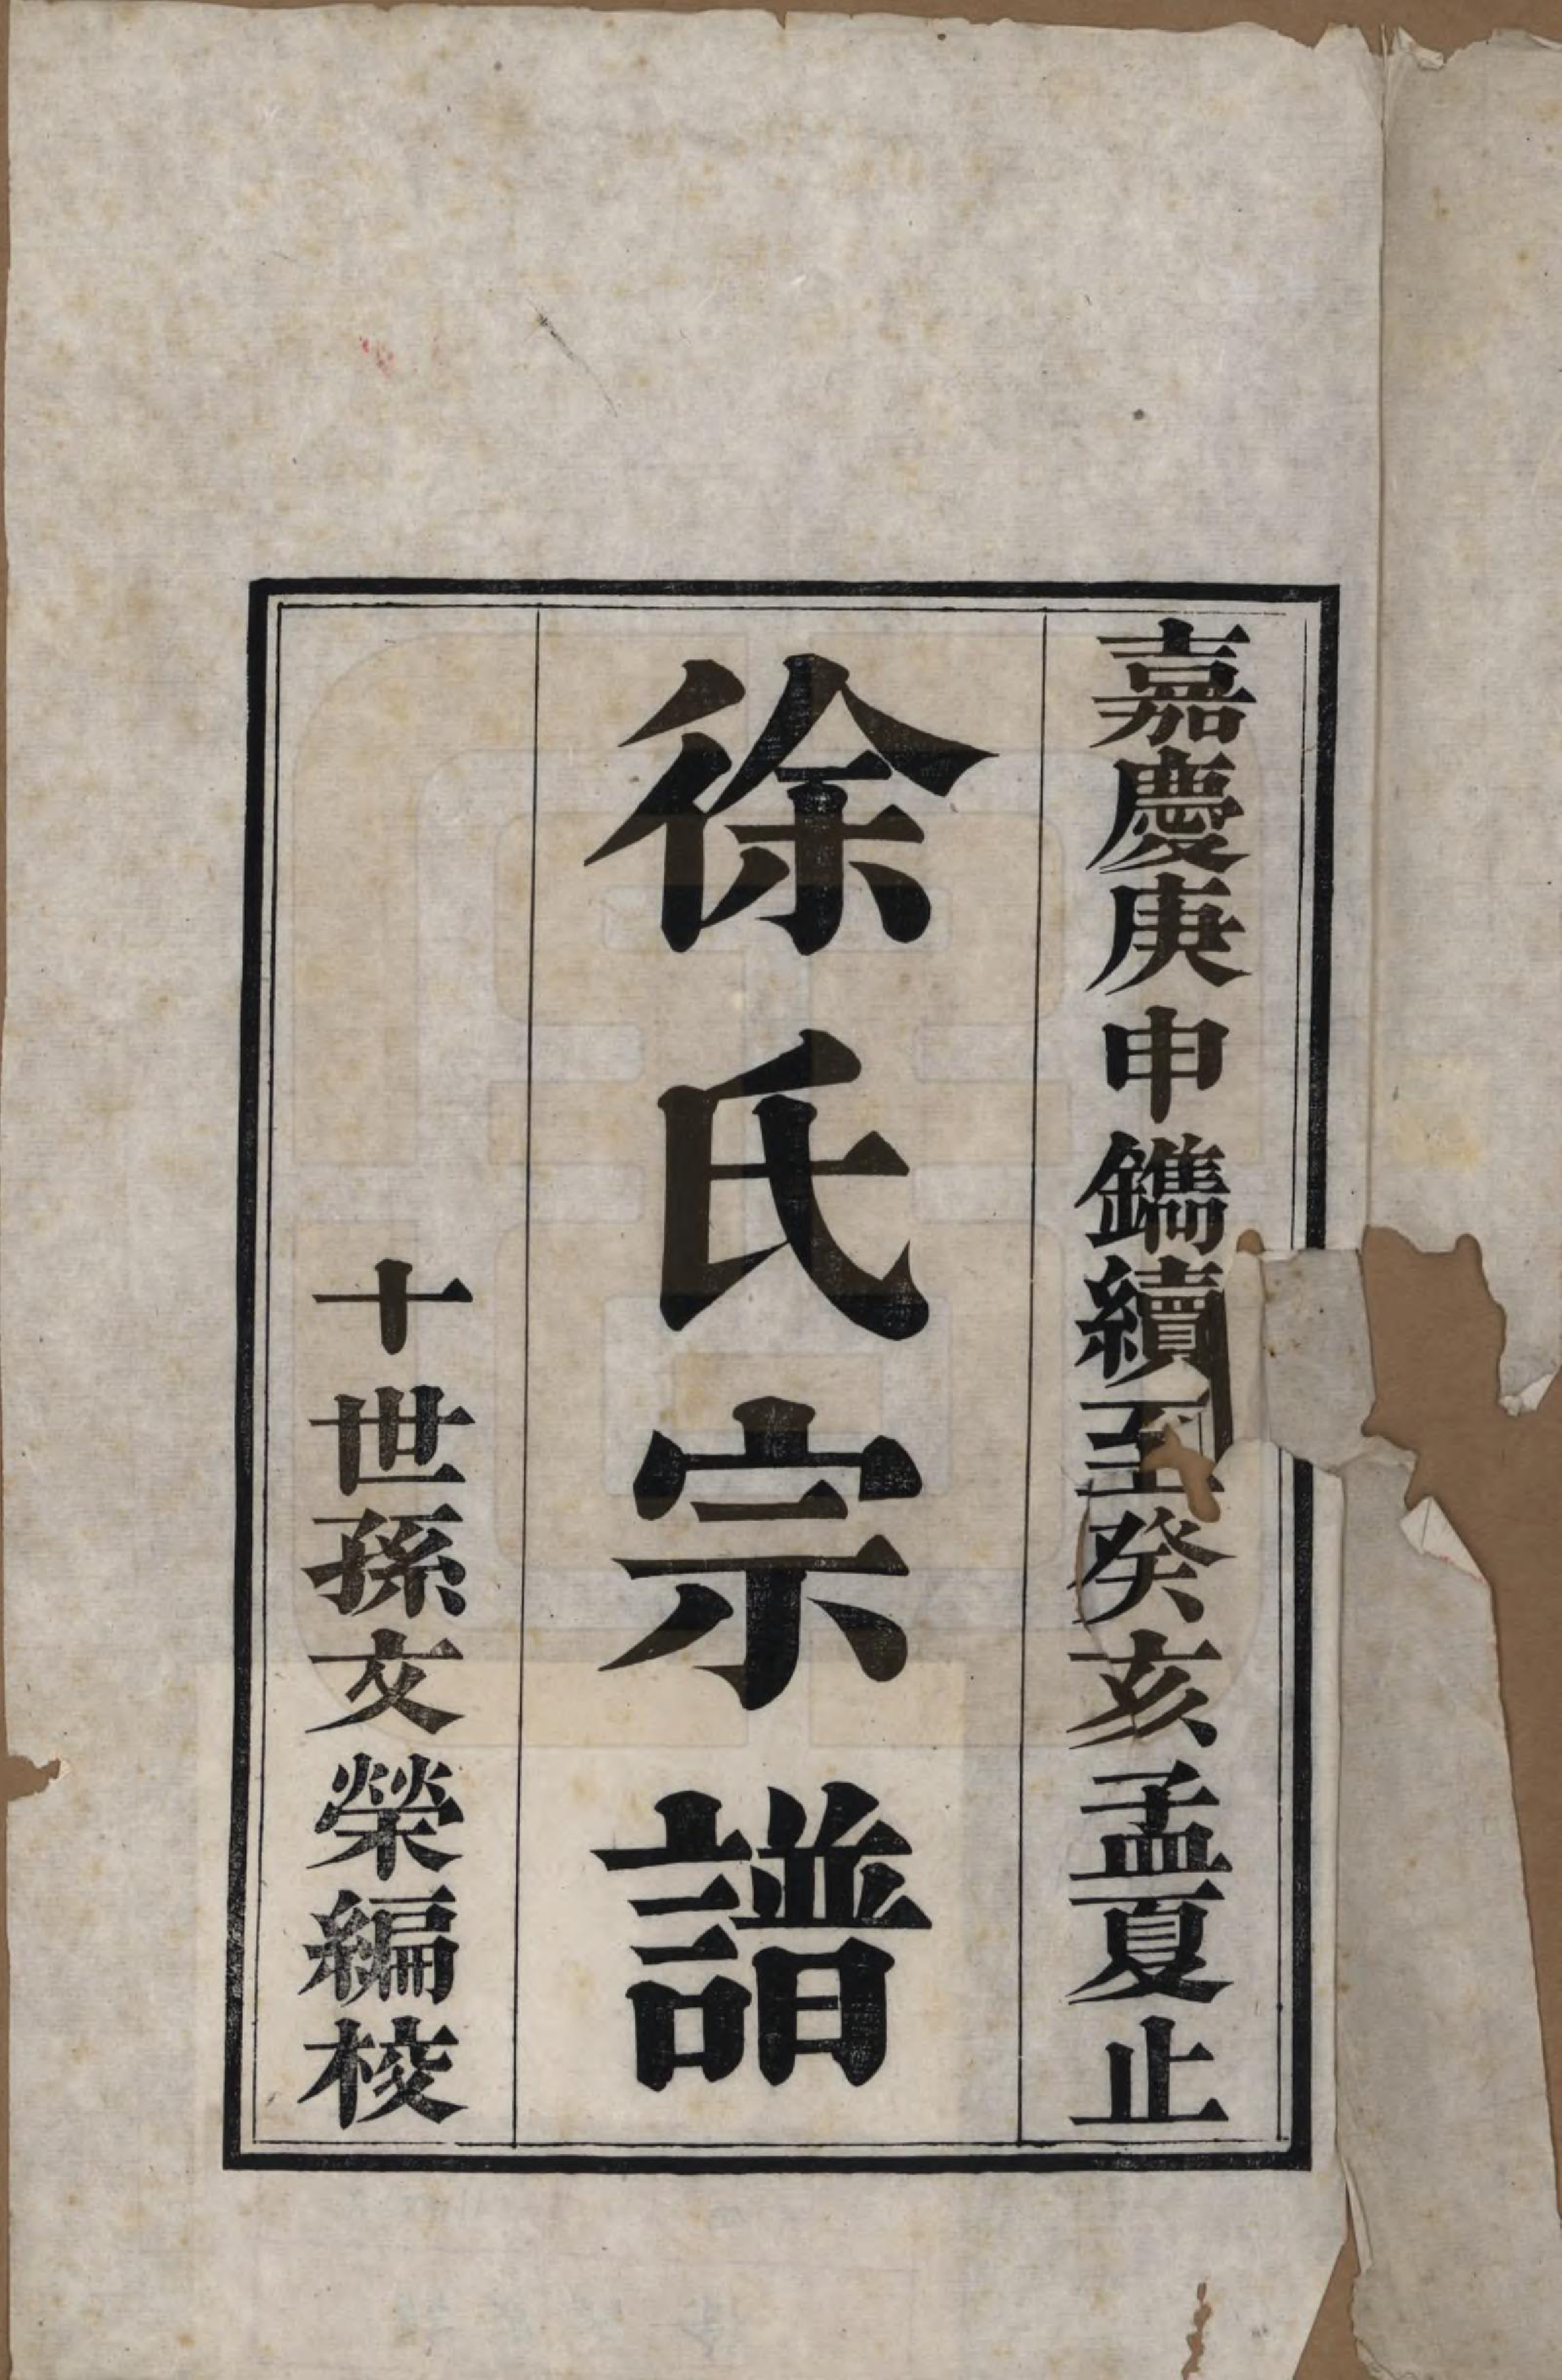 嘉慶庚申鐫續至癸亥孟夏止
徐氏宗譜
十世孫文榮編校